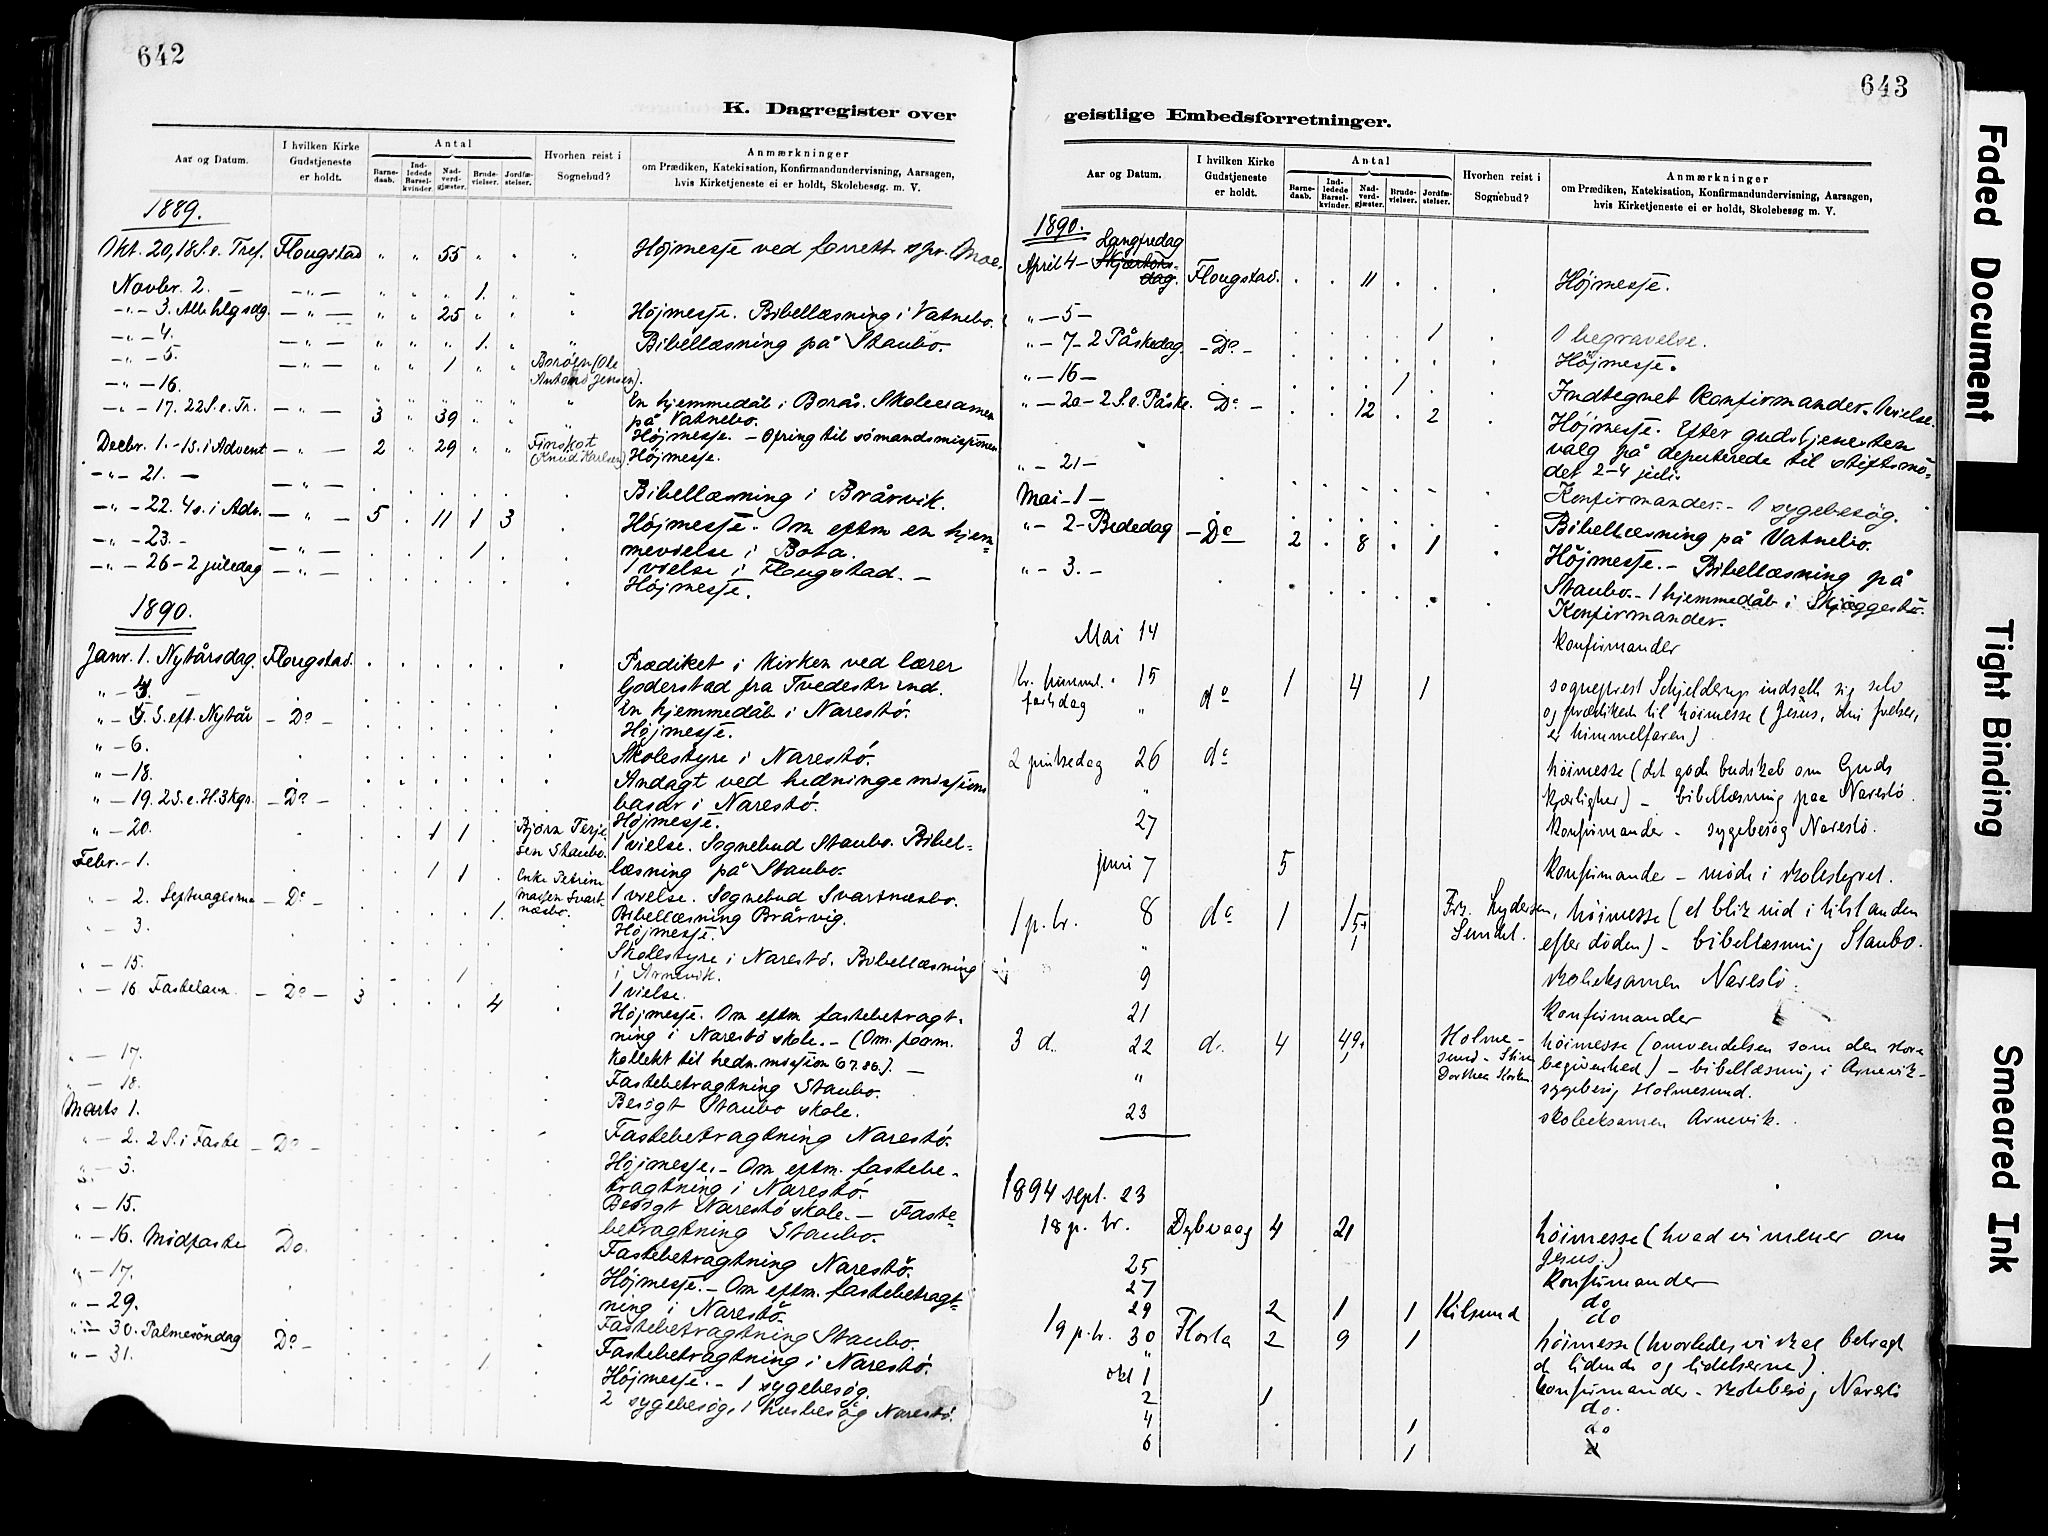 642
K. Dagregister over
Aar og Datum.
I hvilken Kirke Gudstjeneste er holdt.
Antal
Barne-daab.
Ind-ledede Barsel-kvinder.
Nad-verd-gjæster.
Brude-vielser.
Jordfæ-stelser.
Hvorhen reist i Sognebud?
Anmærkninger
om Prædiken, Katekisation, Konfirmandundervisning, Aarsagen,
hvis Kirketjeneste ei er holdt, Skolebesøg. m. V.
1889.
Okt. 20, 18 S. e. Tref. Flougstad " " 55 " " " Højmesse ved forrett. spr. Moe.
Novbr. 2. — -"- " " " 1. " "
-"- 3. Alle hlgsdg. -"- " " 25 " " " Højmesse. Bibellæsning i Vatnebo.
-"- 4. -"- " " " 1. " Bibellæsning på Staubo.
-"- 5. -"- " " 1 " " Borøen (Ole
-"- 16. Antond Jensen).
-"- 17. 22 S. e. Tr. -"- 3 " 39 " " " En hjemmedåb i Borås. Skoleexamen
på Vatnebo.
Højmesse. - Ofring til sømandsmissionen
Decbr. 1. - 1 S. i Advent -"- 2 " 29 " " Finskot
(Knud Karlsen). Højmesse.
-"- 21. — -"-
Bibellæsning i Bråvik.
-"- 22. 4 s. i Adv. -"- 5 . 11 1 3 . Højmesse. Om eftm en hjem=
-"- 23. - -"- . . . 1. . mevielse i Bota.
-"- 26 - 2 juledag -"- 1 vielse i Flougstad. —
Højmesse.
1890.
Janr. 1. Nytårsdag Flougstad. Prædiket i Kirken ved lærer
" - 4. - Goderstad fra Tvedestrand.
" - 5. S. eft. Nytår - Do - En hjemmedåb i Narestø.
Højmesse.
" - 6. Skolestyre i Narestø.
" - 18. Andagt ved hedningemissions
" - 19. 2 S. e. H. 3 kgr. - Do - basar i Narestø.
Højmesse.
" - 20. 1 1 Bjørn Terje-
sen Staubo. 1 vielse. Sognebud Staubo. Bibel=
Febr. - 1. 1 1 læsning på Staubo.
Enke Petrine
" - 2. Septuagesima - Do - 1. 1 vielse. Sognebud Svartnæsbo.
næsbo. Bibellæsning Bråvig.
" - 3. Højmesse.
Skolestyre i Narestø. Bibellæsning
" - 15. 1 i Arnevik.
" - 16 Fastelavn. - Do - 3 4 1 vielse.
Højmesse. Om eftm fastebetragt-
ning i Narestø skole. - (Om form.
" - 17. kollekt til hedn. mission 67.86). —
" - 18. Fastebetragtning Staubo.
Marts 1. Besøgt Staubo skole.
" - 2. 2 S. i Faste - Do - Fastebetragtning Narestø.
" - 3. Højmesse. - Om eftm. fastebe-
tragtning i Narestø.
" - 15. Besøgt Narestø skole. - Faste=
" - 16. Midfaste Do. betragtning Staubo.
" - 17. Fastebetragtning Narestø.
" - 29. Højmesse. - Om eftm. fastebetragt=
ning i Narestø.
" - 30. Palmesöndag Do - Fastebetragtning Staubo.
" - 31. 1. Fastebetragtning i Narestø.
Højmesse. - 1 sygebesøg.
2 sygebesøg, 1 husbesøg Narestø.
643
geistlige Embedsforretninger.
Aar og Datum.
I hvilken Kirke Gudstjeneste er holdt.
Antal
Barne-daab.
Ind-ledede Barsel-kvinder.
Nad-verd-gjæster.
Brude-vielser.
Jordfæ-stelser.
Hvorhen reist i Sognebud?
Anmærkninger
om Prædiken, Katekisation, Konfirmandundervisning, Aarsagen,
hvis Kirketjeneste ei er holdt, Skolebesøg m. V.
1890.
Langfredag
April 4 - Skjærtors-
dag. Flougstad. . . 11 . . . Højmesse.
" - 5 - 1 1 begravelse.
" - 7 - 2 Påskedag. - Do - Højmesse.
" - 16 - 1 Indtegnet konfirmander. 1 vielse.
" - 20 - 2 S. e. Påske. Do - . . 12 . 2 . Højmesse. Efter gudstjenesten
valg på deputerede til stiftsmø-
" - 21 - det 2-4 juli.
Mai - 1 - Konfirmander. - 1 sygebesøg.
" - 2 - Bededag - Do 2 . 8 . 1 . Bibellæsning på Vatnebo.
" - 3. - Højmesse. - Bibellæsning på
Staubo. - 1 hjemmedåb i Skjæggestø.
Konfirmander.
Mai 14 konfirmander
Kr. himmel- 15
fartsdag " do 1 4 1 sogneprest Schjelderup indsatte sig selv
og prædikede til høimesse (Jesus, din frelser,
er himmelfaren)
2 pintsedag 26 do høimesse (det gode budskab om Guds
" kjærlighed) - bibellæsning paa Narestø.
27 konfirmander - sygebesøg Narestø.
juni 7 5 konfirmander - møde i skolestyret.
1 p. tr. 8 do 1 15 Lydersen, høimesse (et blik ind i tilstanden
" efter døden) - bibellæsning Staubo.
9 skoleeksamen Narestø.
21 konfirmander
3 d. 22 d. 4 49 Holme-
sund - høimesse (omvendelsen som den store
" Dorthea begivenhed) - bibellæsning i Arnevik -
sygebesøg Holmesund.
23 skoleeksamen Arnevik.
1894 sept. 23
18 p. tr. Dybvaag 4 21 høimesse (hvad vi mener om
Jesus.)
25 konfirmander
27 do
29 2 1 1 Kilsund do
19 p. tr. 30 Flosta 2 9 1 høimesse (hvorledes vi skal betragt
" d. lidende og lidelserne).
okt 1 konfirmander - skolebesøg Narestø
2 1 do
4 1 do
6 1
Faded Document
Tight Binding
Smeared Ink